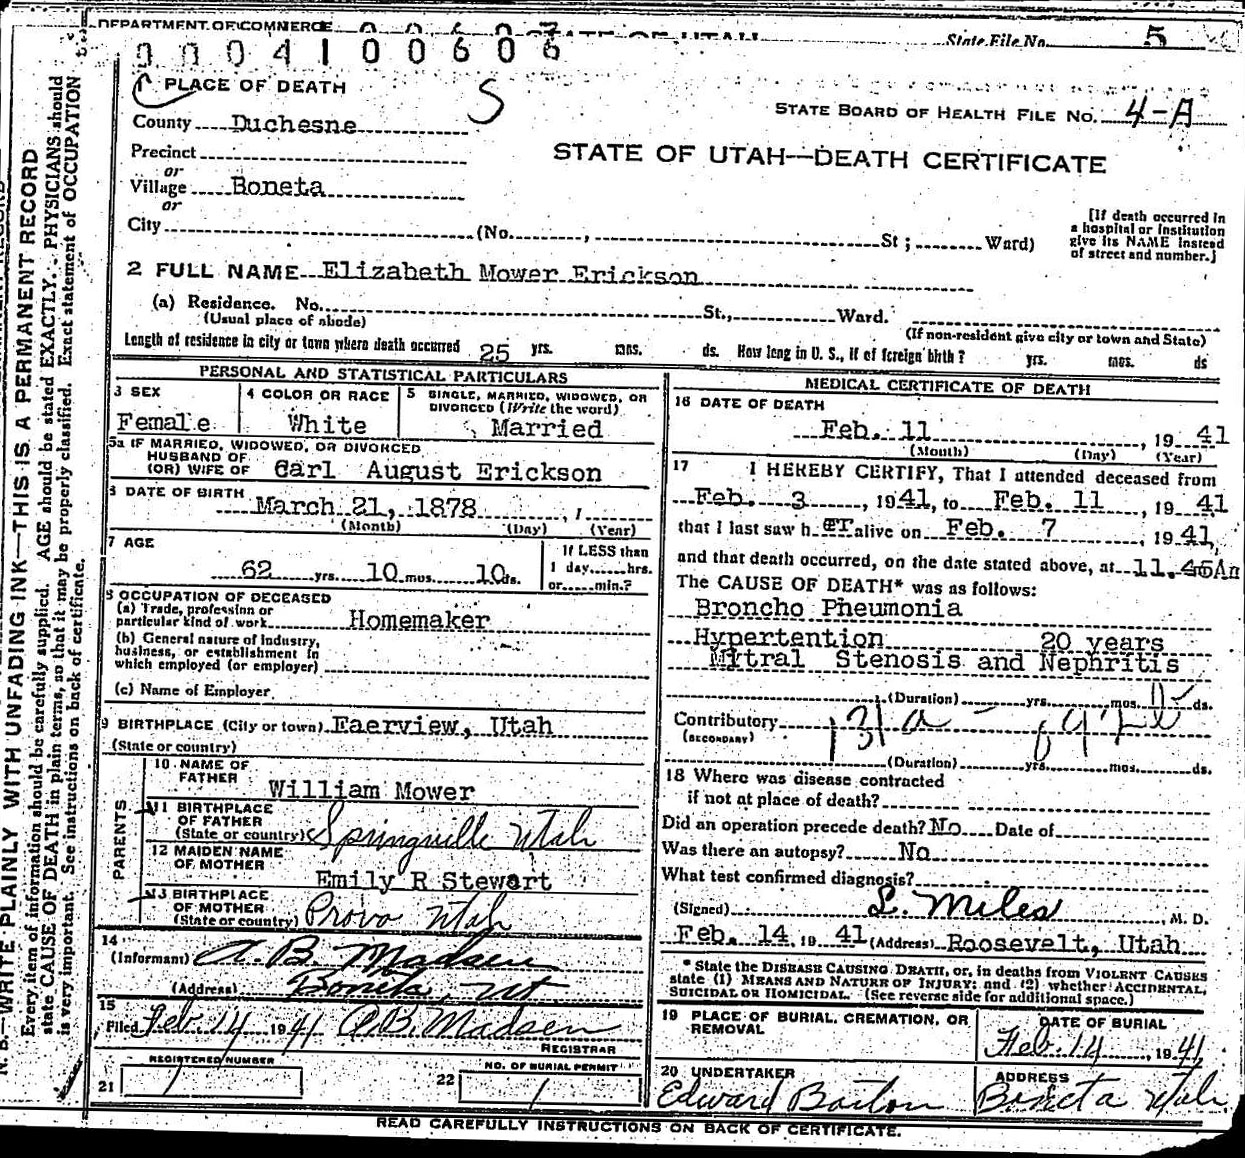 DEPARTMENT OF COMMERCE
STATE OF UTAH
State File No. 5
0004100606
PLACE OF DEATH
S
STATE BOARD OF HEALTH FILE No. 4-A
County Duchesne
STATE OF UTAH—DEATH CERTIFICATE
Precinct
or
Village Boneta
or
City (No. , St ; Ward)
[If death occurred in
a hospital or institution
give its NAME instead
of street and number.]
2 FULL NAME Elizabeth Mower Erickson
(a) Residence. No. St., Ward.
(Usual place of abode) (If non-resident give city or town and State)
Length of residence in city or town where death occurred 25 yrs. mos. ds. How long in U. S., if of foreign birth? yrs. mos. ds
PERSONAL AND STATISTICAL PARTICULARS
3 SEX
Female
4 COLOR OR RACE
White
5 SINGLE, MARRIED, WIDOWED, OR
DIVORCED (Write the word)
Married
5a IF MARRIED, WIDOWED, OR DIVORCED
HUSBAND OF
(OR) WIFE OF Carl August Erickson
6 DATE OF BIRTH March 21, 1878 , 1
(Month) (Day) (Year)
7 AGE
62 yrs. 10 mos. 10 ds.
If LESS than
1 day, hrs.
or min.?
8 OCCUPATION OF DECEASED
(a) Trade, profession or
particular kind of work Homemaker
(b) General nature of industry,
business, or establishment in
which employed (or employer)
(c) Name of Employer
9 BIRTHPLACE (City or town) Faerview, Utah
(State or country)
PARENTS
10 NAME OF
FATHER William Mower
11 BIRTHPLACE
OF FATHER
(State or country) Springville Utah
12 MAIDEN NAME
OF MOTHER Emily R Stewart
13 BIRTHPLACE
OF MOTHER
(State or country) Provo Utah
14
(Informant) A. B. Madsen
(Address) Boneta, Ut
15
Filed Feb. 14 1941 A.B. Madsen
REGISTRAR
REGISTERED NUMBER
21 1
NO. OF BURIAL PERMIT
22 1
MEDICAL CERTIFICATE OF DEATH
16 DATE OF DEATH
Feb. 11 , 19 41
(Month) (Day) (Year)
17 I HEREBY CERTIFY, That I attended deceased from
Feb. 3 , 1941, to Feb. 11 , 19 41
that I last saw h er alive on Feb. 7 , 19 41,
and that death occurred, on the date stated above, at 11.45Am
The CAUSE OF DEATH* was as follows:
Broncho Pheumonia
Hypertention 20 years
Mitral Stenosis and Nephritis
(Duration) yrs. mos. ds.
Contributory 131a
(SECONDARY)
(Duration) yrs. mos. ds.
18 Where was disease contracted
if not at place of death?
Did an operation precede death? No Date of
Was there an autopsy? No
What test confirmed diagnosis?
(Signed) L. Miles , M. D.
Feb. 14, 19 41 (Address) Roosevelt, Utah
* State the DISEASE CAUSING DEATH, or, in deaths from VIOLENT CAUSES
state (1) MEANS AND NATURE OF INJURY; and (2) whether ACCIDENTAL,
SUICIDAL OR HOMICIDAL. (See reverse side for additional space.)
19 PLACE OF BURIAL, CREMATION, OR
REMOVAL
DATE OF BURIAL
Feb. 14 , 1941
20 UNDERTAKER
Edward Barton
ADDRESS
Boneta Utah
READ CAREFULLY INSTRUCTIONS ON BACK OF CERTIFICATE.
N. B.—WRITE PLAINLY WITH UNFADING INK—THIS IS A PERMANENT RECORD
Every item of information should be carefully supplied. AGE should be stated EXACTLY. PHYSICIANS should
state CAUSE OF DEATH in plain terms, so that it may be properly classified. Exact statement of OCCUPATION
is very important. See instructions on back of certificate.